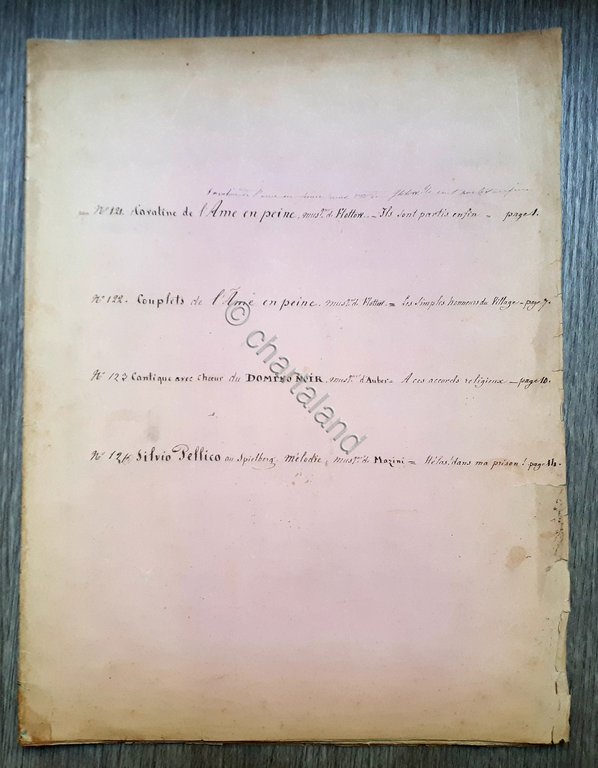 Nº 121. Cavatine de l'Ame en peine, musq. de Flottow. - Ils sont partis enfin - page 1.
Nº 122. Couplets de l'Ame en peine. musq. de Flottow. = Les simples honneurs du Village - page 7.
© chartaland
Nº 123 Cantique avec chœur du DOMINO NOIR, musq. d'Auber - A ces accords religieux - page 10.
Nº 124. Silvio Pellico au Spielberg, mélodie, musq. de Mazini = Hélas! dans ma prison! page 14.